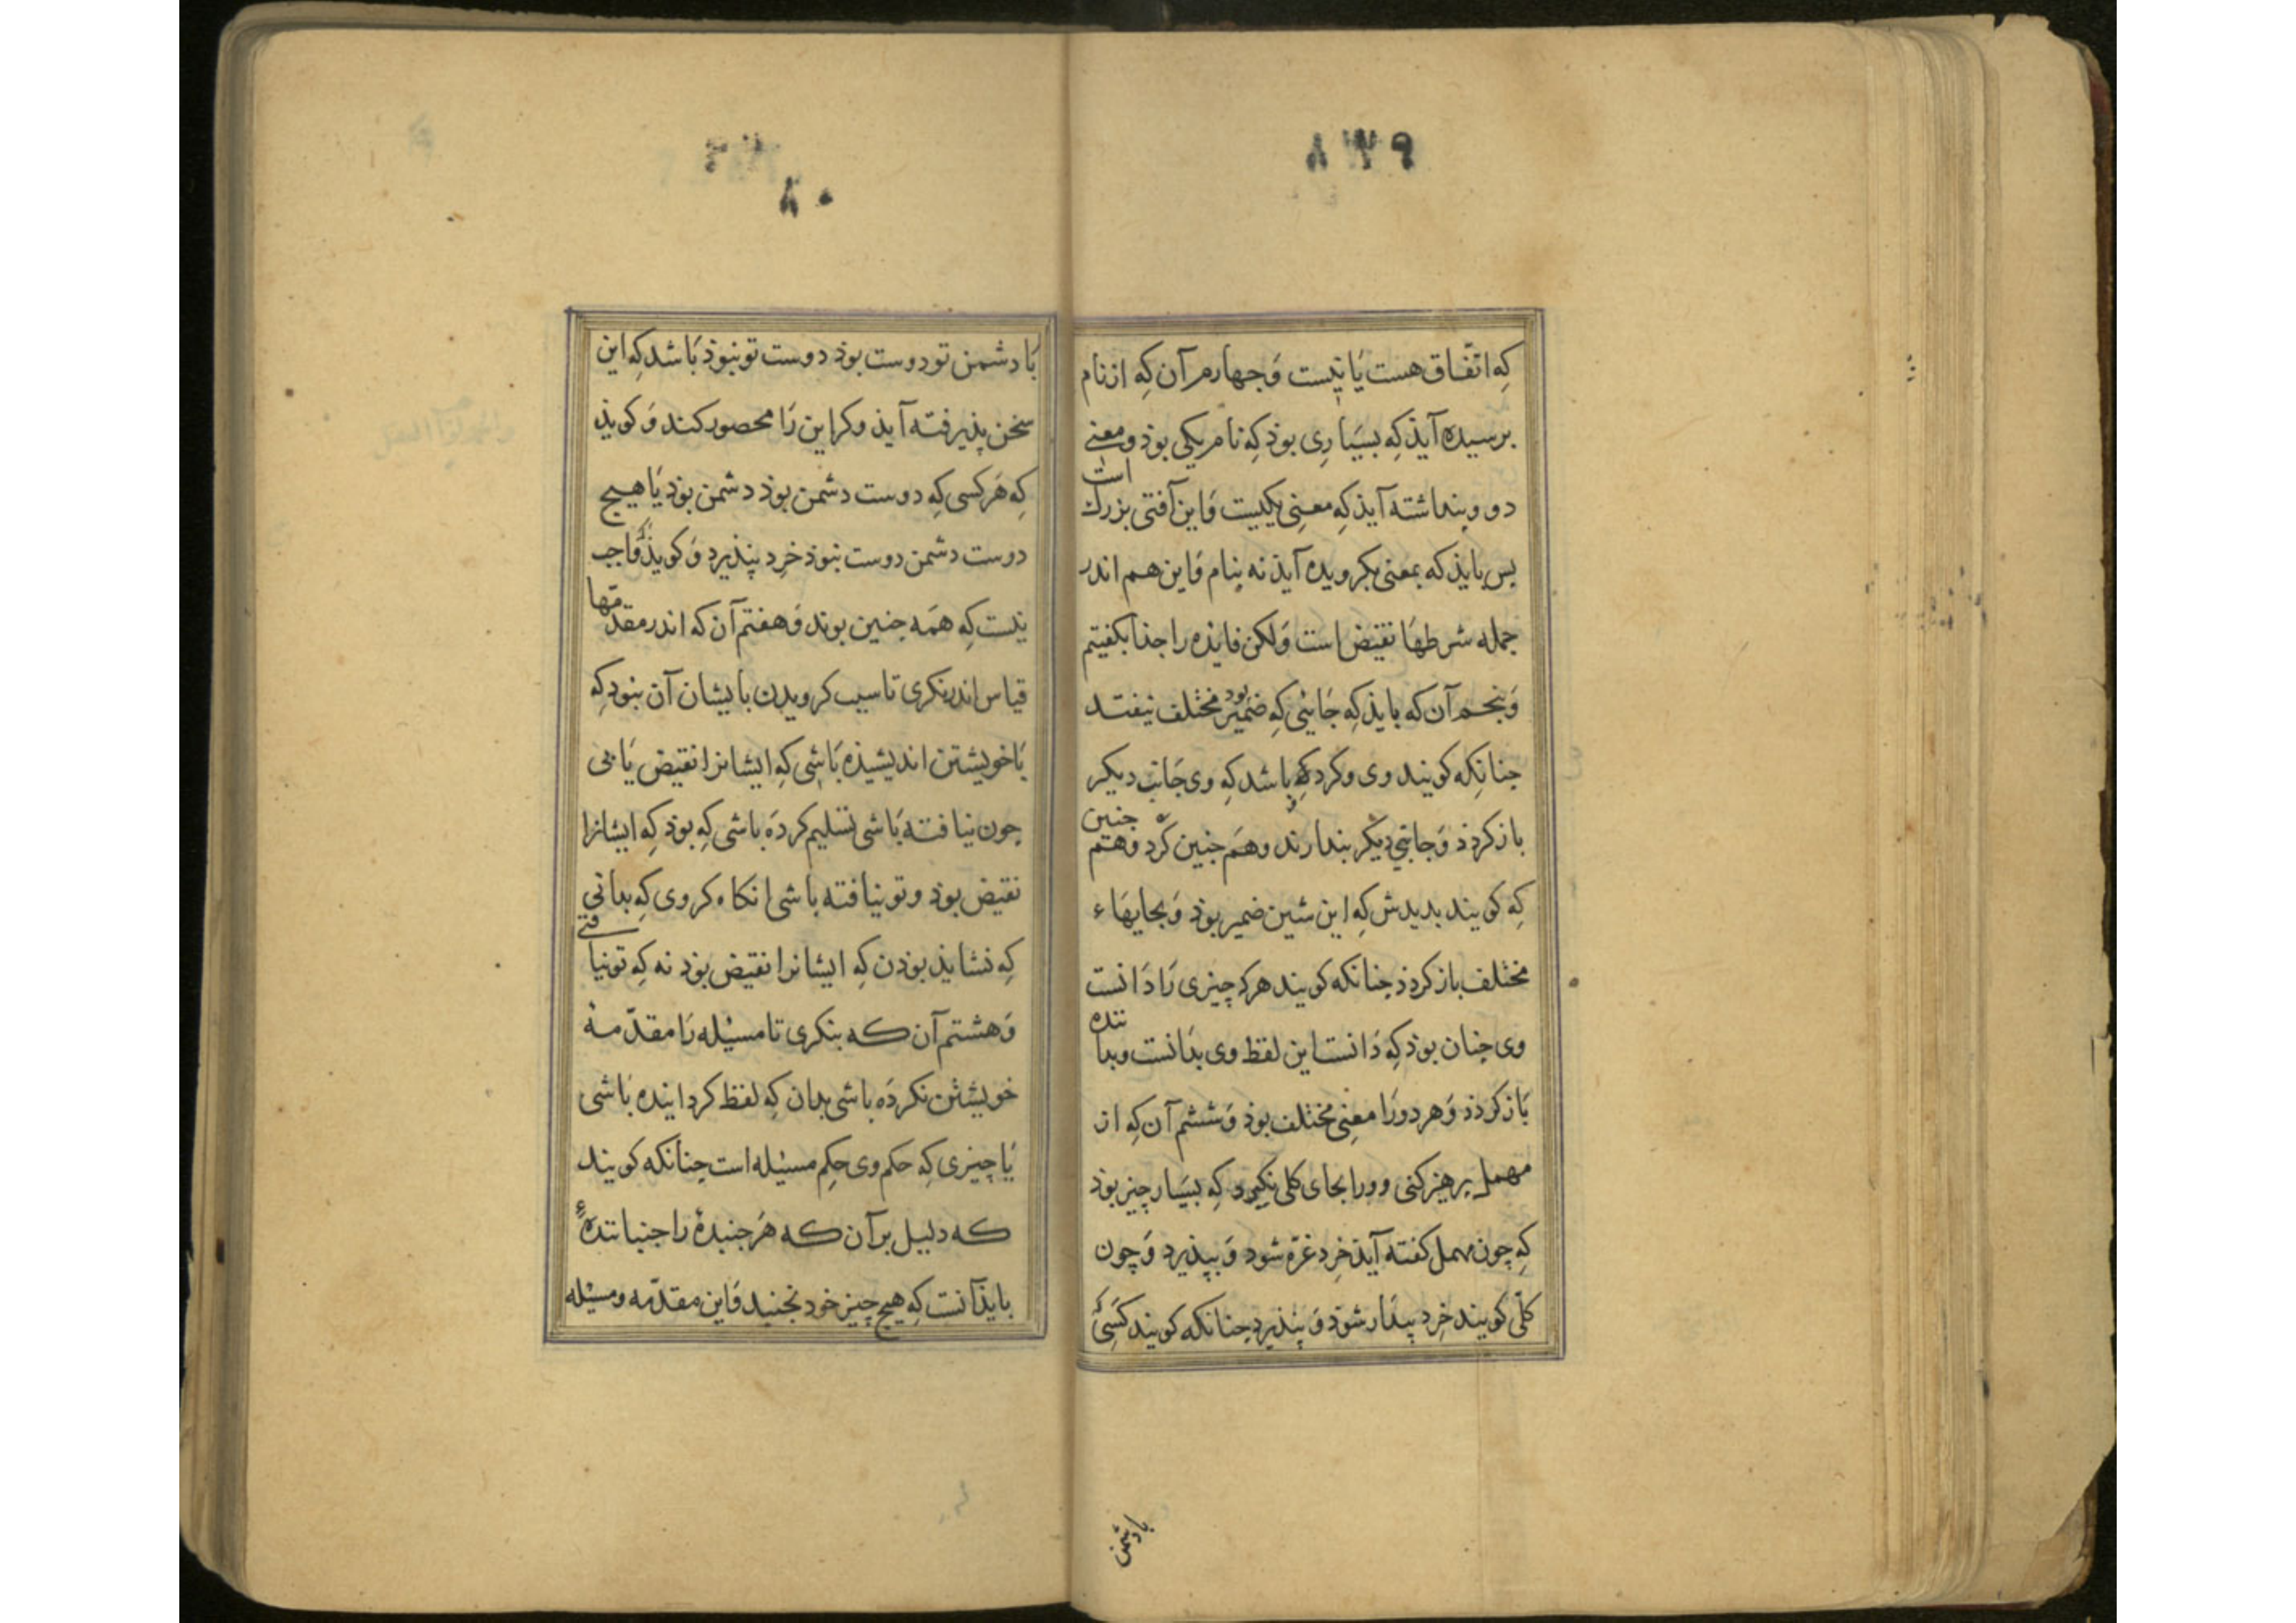 ۸۳۹
که اتّفاق هست یا نیست وَ جهارم آن که از نام
برسیده آیذ که بسیاری بوذ که نام یکی بوذ و معنی
دو و بنداشته آیذ که معنِی یکیست وَ این آفتی بزرک است
بس بایذ که بمعنی بکرویده آیذ نه بنام وَ این هم اندر
جمله شرطهَا نقیض است وَلکن فایذه را جذا بکفیتم
وَ بنجم آن که بایذ که جَائی که ضمیر بود مختلف نیفتد
جنانکه کویند وی وکرد که باشد که وی جَانب دیکر
باز کردذ وَ جانبی دیکر بندارند وهَم جنین کَرد وهتم جنین
که کویند بدیدش که این شین ضمیر بوذ وَ بجایهَاء
مختلف باز کردذ جنانکه کویند هرکه چیزی رَا دَانست
وی جنان بوذ که دَانست این لفظ وی بدَانست وبدا ننده
بَاز کَردذ وَ هر دو رَا معنِی مختلف بوذ وَ ششم آن که از
مهمل برهیز کنی و ورا بجای کلی نکیرد که بسیَار چیز بوذ
که چون مهمل کفته آیذ خِرد غرّه شود وَ بپذیرد وَ چون
کلّی کویند خِرد بیدَار شوذ وَ نپذیرد جنانکه کویند کَسِی که
بادشمن
۸۰
بَا دشمن تو دوست بوذ دوست تو نبوذ بَاشد که این
سخن پذیرفته آیذ وکر این رَا محصور کنند وَ کویذ
که هَر کسی که دوست دشمن بوذ دشمن بوذ یَا هیچ
دوست دشمن دوست نبوذ خِرد نپذیرد وَ کویذ که وَاجب
نیست که همَه جنین بوند وَ هفتم آن که اندر مقدّمها
قیاس اندر نکری تا سبب کرویدن بایشان آن نبود که
بَا خویشتن اندیشیذه بَاشی که ایشانرا نقیض یَابی
جون نیافته بَاشی تسلیم کردَه باشی که بوذ که ایشانرا
نقیض بوذ وتو نیافته باشی انکاه کروی که بدانی
که نشایذ بوذن که ایشانرا نقیض بوذ نه که تو نیافتی
وَ هشتم آن که بنکری تا مسئله رَا مقدّمهٔ
خویشتن نکردَه باشی بدان که لفظ کردانیده بَاشی
یَا چیزی که حکم وی حِکم مسئله است جنانکه کَویند
که دلیل بر آن که هَر جنبدهٔ را جنبانندهٔ
بایذ آنست که هیچ چیز خود نجنبد وَ این مقدّمه ومسئله